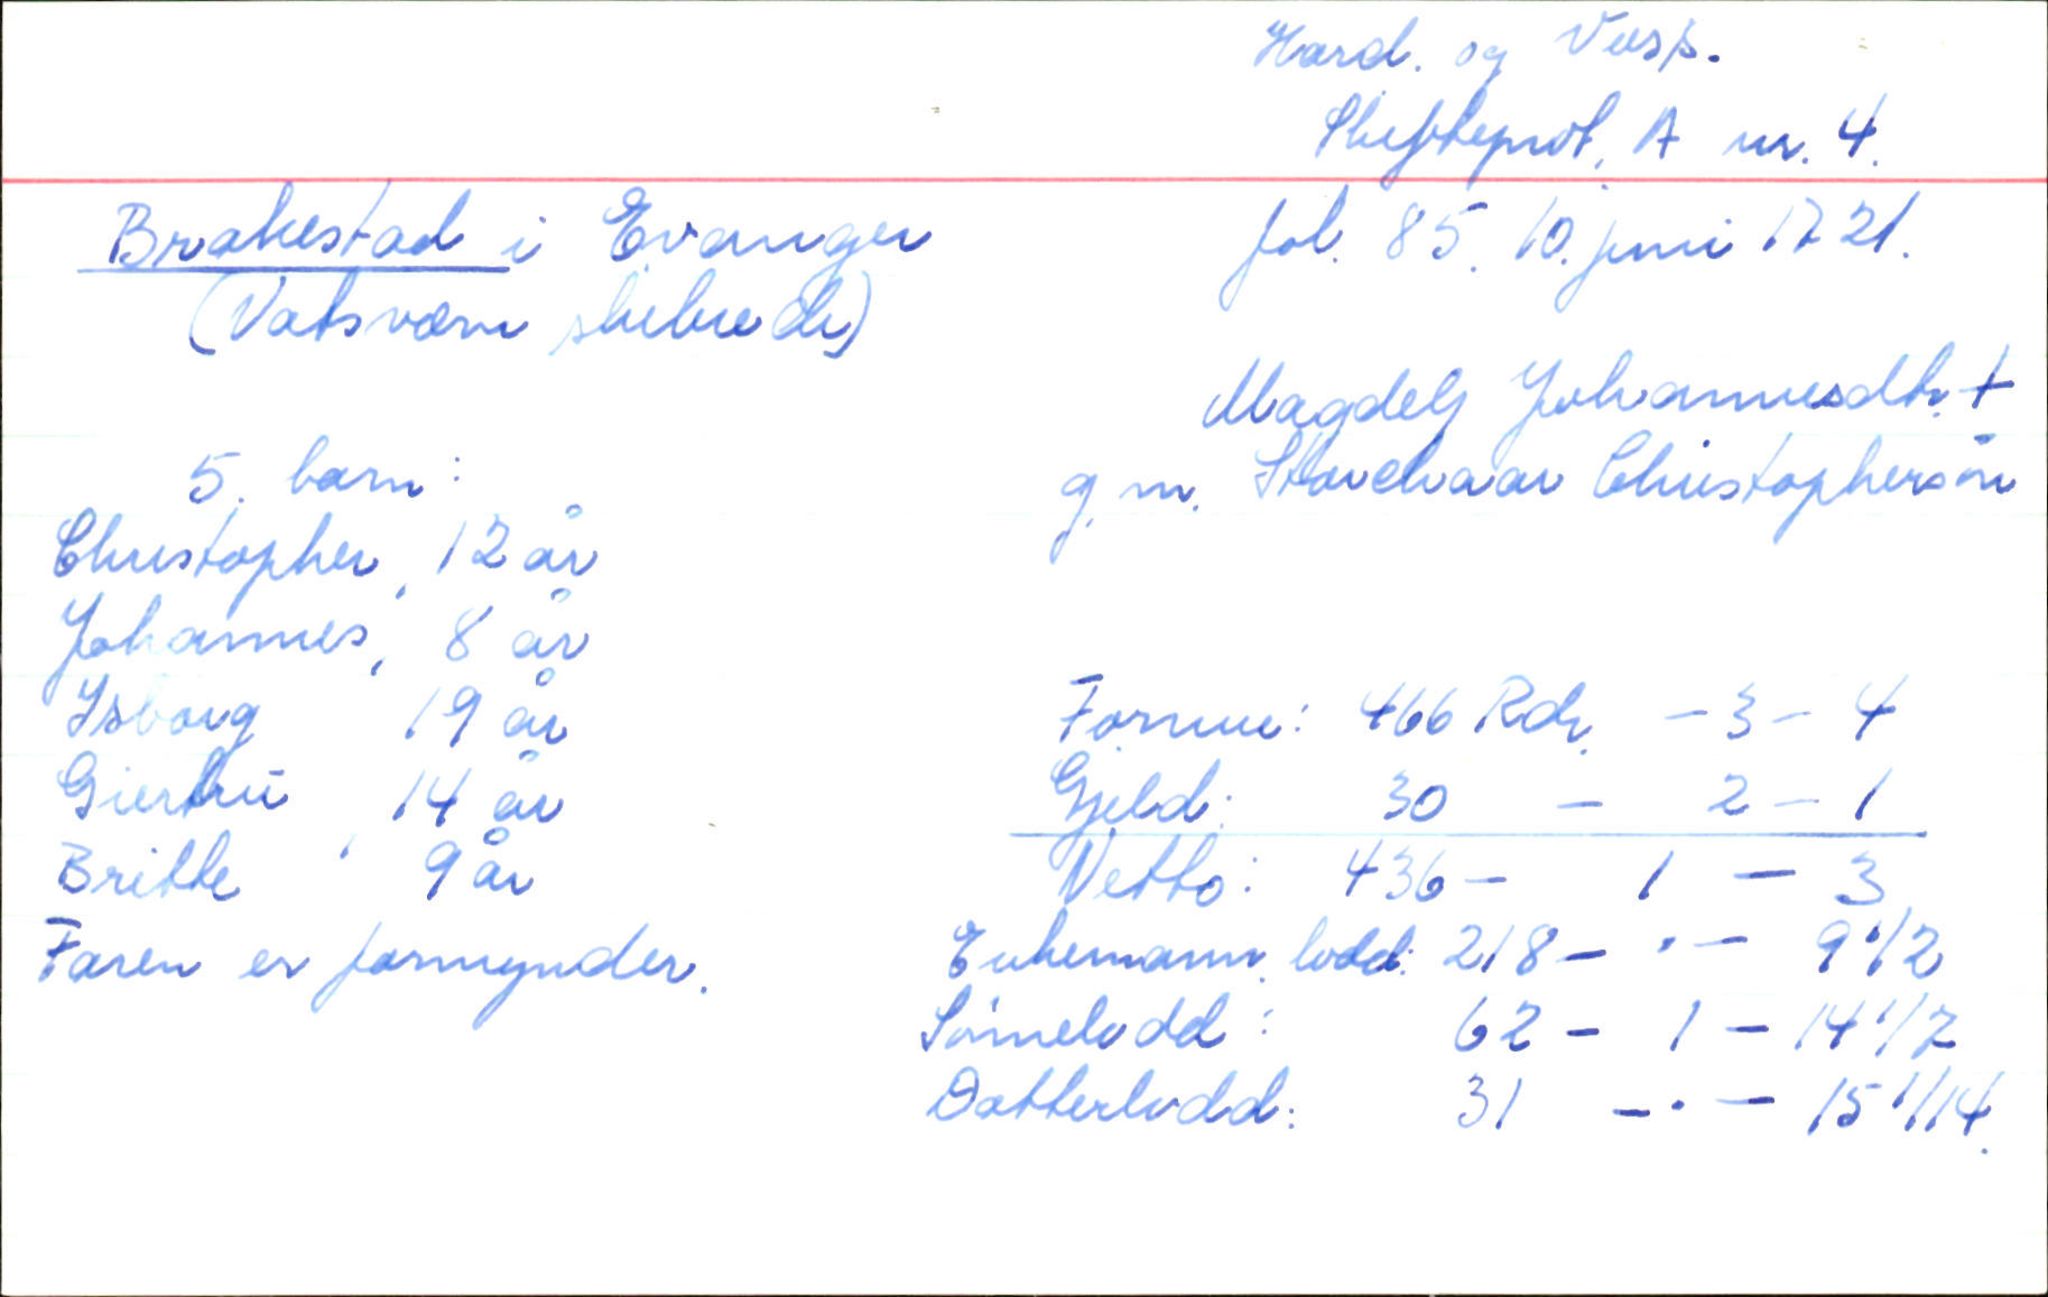 Hard. og Voss.
Skifteprot. A nr. 4.
fol. 85. 10. juni 1721.
Brakestad i Evanger
(Vatsværn skibrede)
Magdely Johannesdtr. +
g. m. Starchaar Christophersøn
5. barn:
Christopher, 12 år
Johannes, 8 år
Isborg 19 år
Giertru 14 år
Britte, 9 år
Faren er formynder.
Formue: 466 Rdr. - 3 - 4
Gjeld: 30 - 2 - 1
Netto: 436 - 1 - 3
Enkemann. lodd: 218 - · - 9 1/2
Sønnelodd: 62 - 1 - 14 1/7
Datterlodd: 31 - · - 15 1/14.